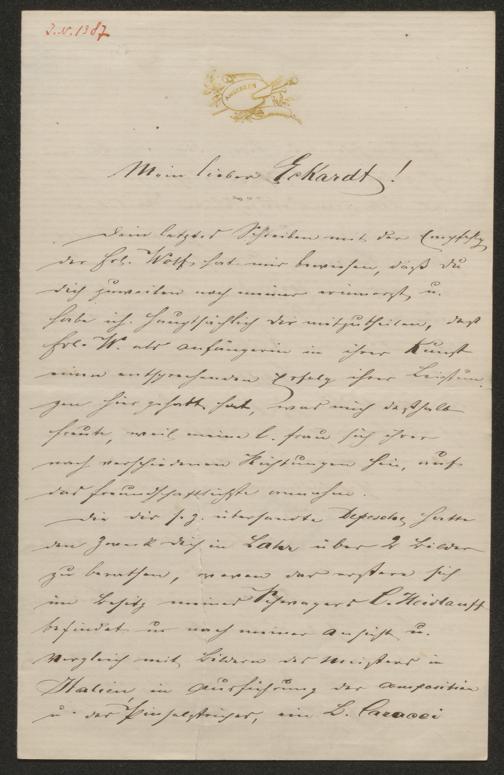 J. N. 1387
Mein lieber Eckardt!
Dein letztes Schreiben mit der Empfehlg
der Frl. Wolff hat mir bewiesen, daß du
dich zuweilen noch meiner erinnerst, u.
habe ich hauptsächlich dir mitzutheilen, daß
Frl. W. als Anfängerin in ihrer Kunst
einen entsprechenden Erfolg ihrer Leistun-
gen hier gehabt hat, was mich deßhalb
freute, weil meine l. Frau sich ihrer
nach verschiedenen Richtungen hin, auf
das freundschaftlichste annahm.
Die dir s. Z. übersandte Depesche hatte
den Zweck dich in Lahr über 2 Bilder
zu berathen, wovon das erstere sich
im Besitz meines Schwagers C. Heidlauff
befindet u. nach meiner Ansicht u.
Vergleich mit Bildern des Meisters in
Italien, in Ausführung der Composition
u. des Pinselstriches, ein L. Caracci